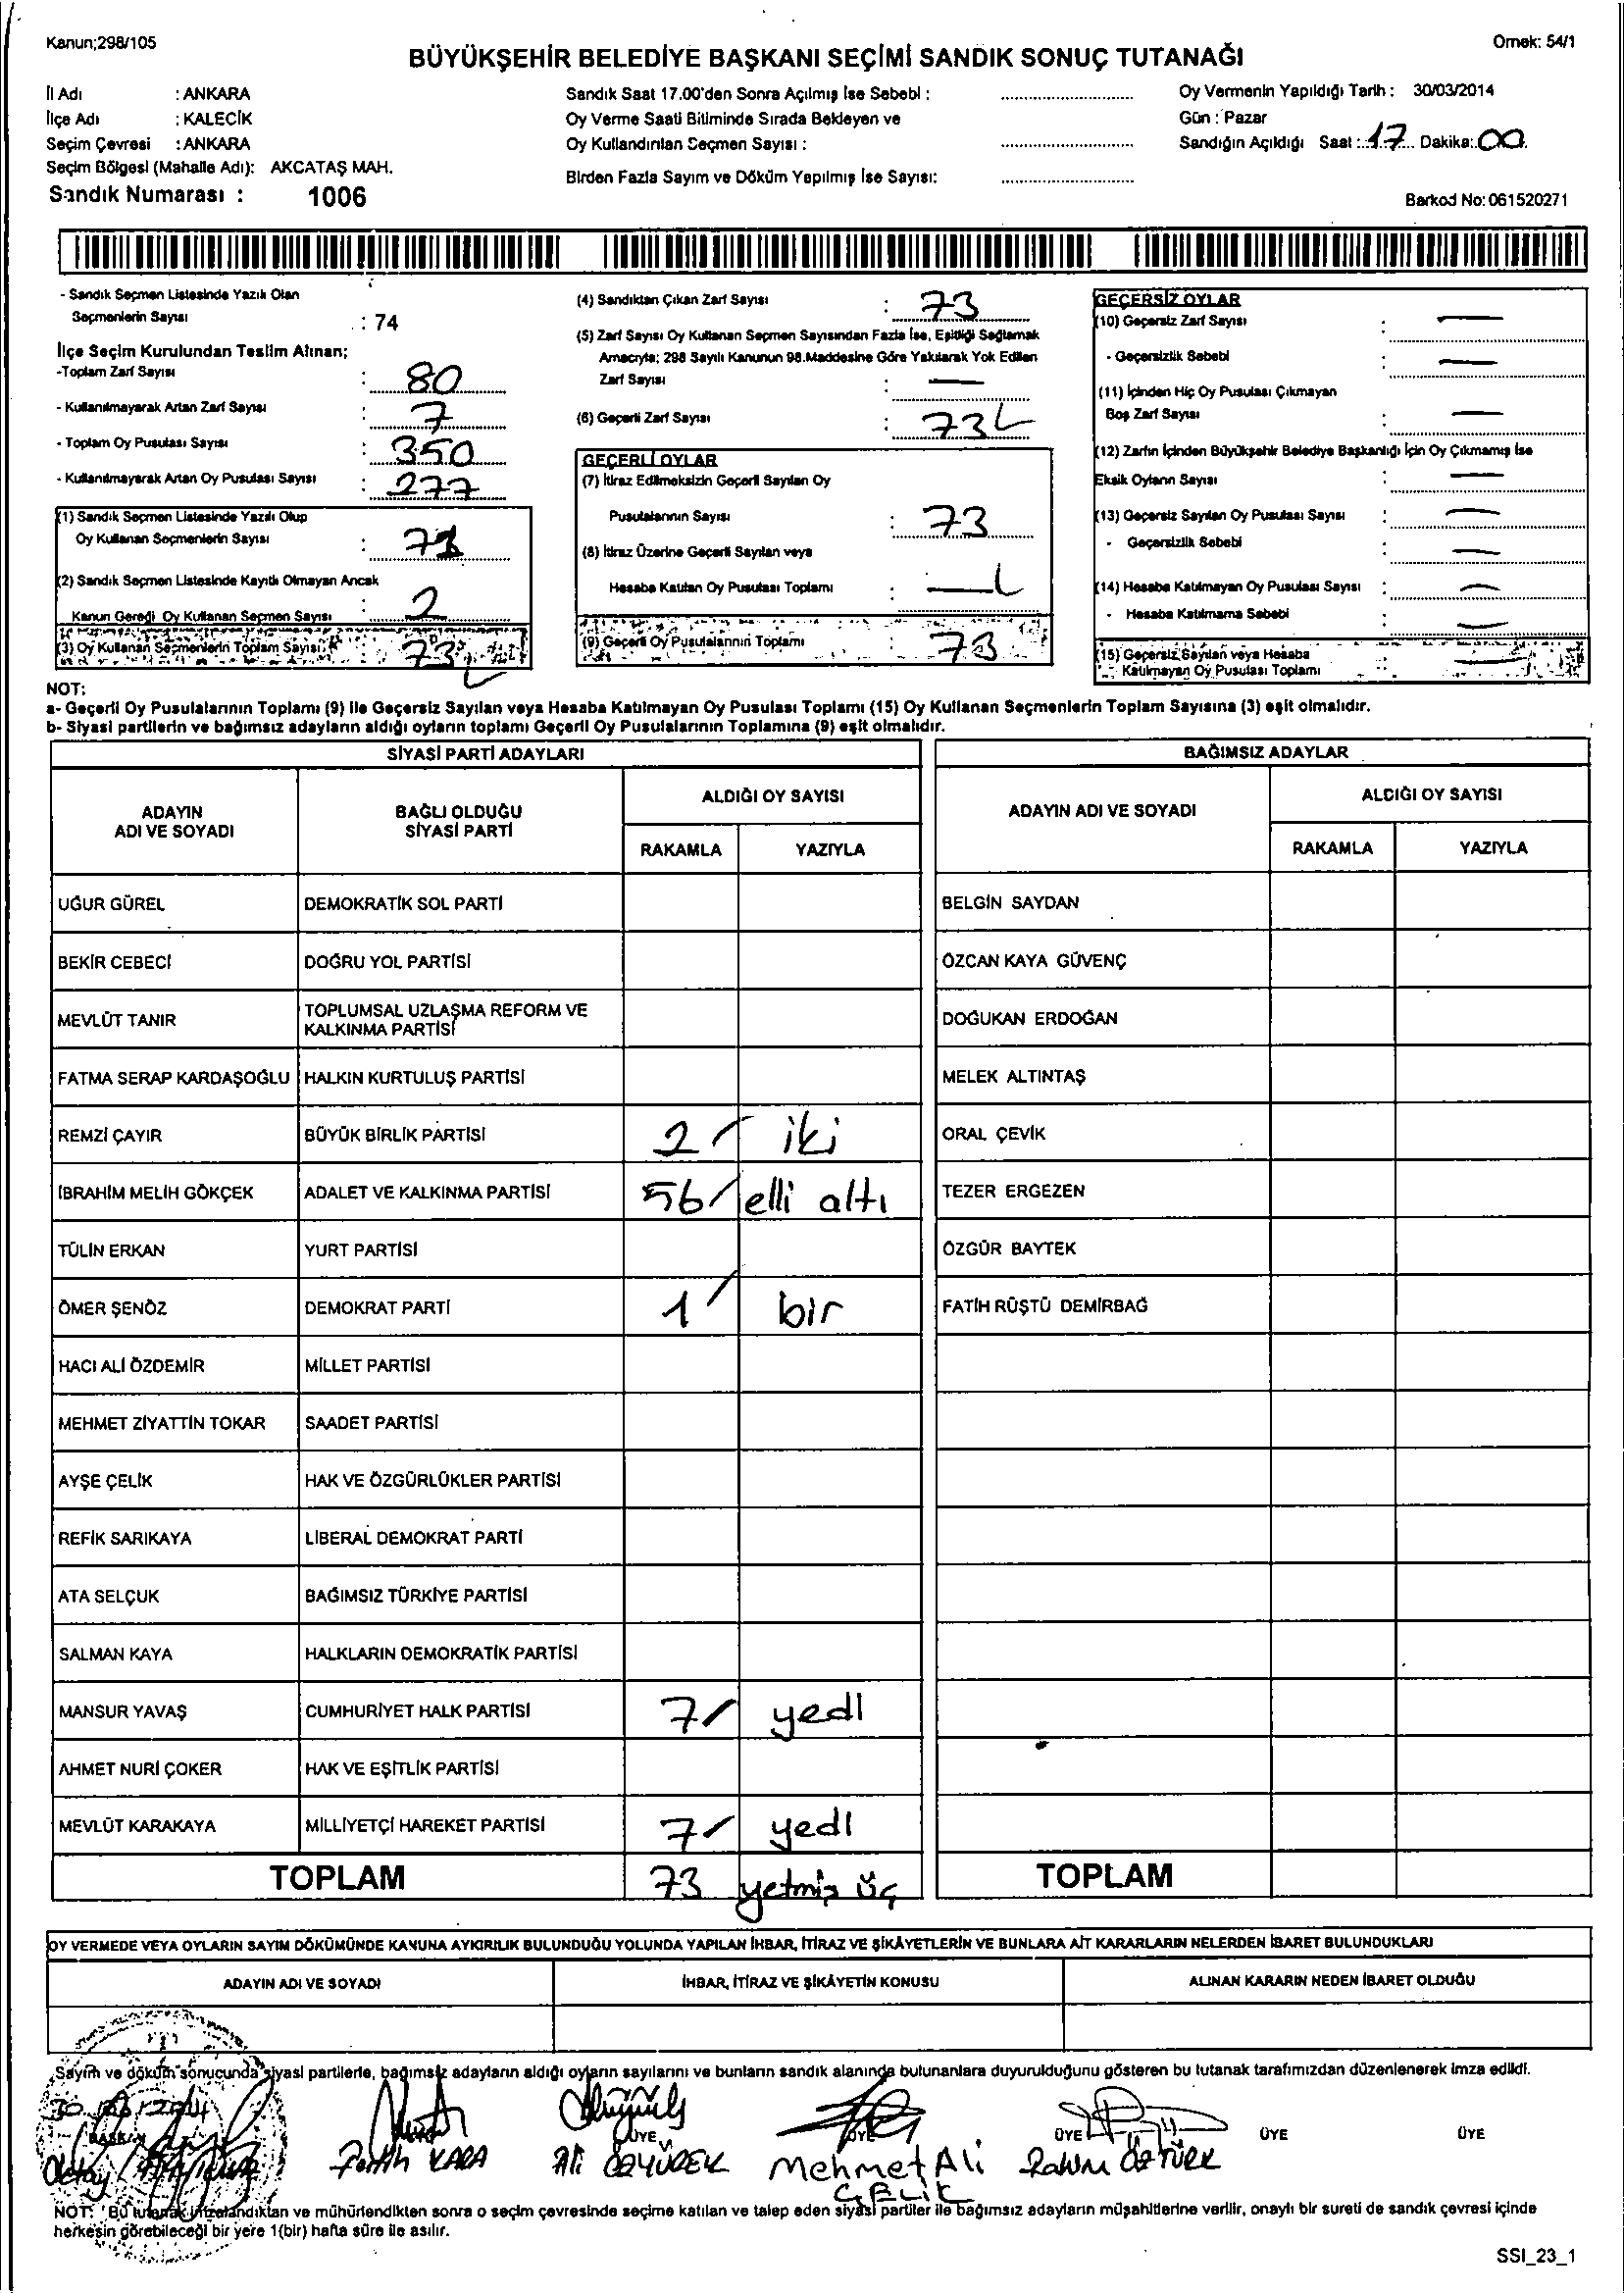 Kanun;298/105
Örnek: 54/1
BÜYÜKŞEHİR BELEDİYE BAŞKANI SEÇİMİ SANDIK SONUÇ TUTANAĞI
İl Adı : ANKARA
İlçe Adı : KALECİK
Seçim Çevresi : ANKARA
Seçim Bölgesi (Mahalle Adı): AKCATAŞ MAH.
Sandık Numarası : 1006
Sandık Saat 17.00'den Sonra Açılmış İse Sebebi :
Oy Verme Saati Bitiminde Sırada Bekleyen ve
Oy Kullandırılan Seçmen Sayısı :
Birden Fazla Sayım ve Döküm Yapılmış İse Sayısı:
Oy Vermenin Yapıldığı Tarih : 30/03/2014
Gün : Pazar
Sandığın Açıldığı Saat : 17 Dakika: 00
Barkod No: 061520271
- Sandık Seçmen Listesinde Yazılı Olan
Seçmenlerin Sayısı : 74
İlçe Seçim Kurulundan Teslim Alınan;
-Toplam Zarf Sayısı : 80
- Kullanılmayarak Artan Zarf Sayısı : 7
- Toplam Oy Pusulası Sayısı : 350
- Kullanılmayarak Artan Oy Pusulası Sayısı : 277
(1) Sandık Seçmen Listesinde Yazılı Olup
Oy Kullanan Seçmenlerin Sayısı : 71
(2) Sandık Seçmen Listesinde Kayıtlı Olmayan Ancak
Kanun Gereği Oy Kullanan Seçmen Sayısı : 2
(3) Oy Kullanan Seçmenlerin Toplam Sayısı: 73
(4) Sandıktan Çıkan Zarf Sayısı : 73
(5) Zarf Sayısı Oy Kullanan Seçmen Sayısından Fazla İse, Eşitliği Sağlamak
Amacıyla; 298 Sayılı Kanunun 98.Maddesine Göre Yakılarak Yok Edilen
Zarf Sayısı : —
(6) Geçerli Zarf Sayısı : 73
GEÇERLİ OYLAR
(7) İtiraz Edilmeksizin Geçerli Sayılan Oy
Pusulalarının Sayısı : 73
(8) İtiraz Üzerine Geçerli Sayılan veya
Hesaba Katılan Oy Pusulası Toplamı : —
(9) Geçerli Oy Pusulalarının Toplamı : 73
GEÇERSİZ OYLAR
(10) Geçersiz Zarf Sayısı : —
- Geçersizlik Sebebi : —
(11) İçinden Hiç Oy Pusulası Çıkmayan
Boş Zarf Sayısı : —
(12) Zarfın İçinden Büyükşehir Belediye Başkanlığı İçin Oy Çıkmamış İse
Eksik Oyların Sayısı : —
(13) Geçersiz Sayılan Oy Pusulası Sayısı : —
- Geçersizlik Sebebi : —
(14) Hesaba Katılmayan Oy Pusulası Sayısı : —
- Hesaba Katılmama Sebebi : —
(15) Geçersiz Sayılan veya Hesaba
Katılmayan Oy Pusulası Toplamı : —
NOT:
a- Geçerli Oy Pusulalarının Toplamı (9) ile Geçersiz Sayılan veya Hesaba Katılmayan Oy Pusulası Toplamı (15) Oy Kullanan Seçmenlerin Toplam Sayısına (3) eşit olmalıdır.
b- Siyasi partilerin ve bağımsız adayların aldığı oyların toplamı Geçerli Oy Pusulalarının Toplamına (9) eşit olmalıdır.
SİYASİ PARTİ ADAYLARI
ADAYIN ADI VE SOYADI
BAĞLI OLDUĞU SİYASİ PARTİ
ALDIĞI OY SAYISI
RAKAMLA YAZIYLA
UĞUR GÜREL DEMOKRATİK SOL PARTİ
BEKİR CEBECİ DOĞRU YOL PARTİSİ
MEVLÜT TANIR TOPLUMSAL UZLAŞMA REFORM VE
KALKINMA PARTİSİ
FATMA SERAP KARDAŞOĞLU HALKIN KURTULUŞ PARTİSİ
REMZİ ÇAYIR BÜYÜK BİRLİK PARTİSİ 2 iki
İBRAHİM MELİH GÖKÇEK ADALET VE KALKINMA PARTİSİ 56 elli altı
TÜLİN ERKAN YURT PARTİSİ
ÖMER ŞENÖZ DEMOKRAT PARTİ 1 bir
HACI ALİ ÖZDEMİR MİLLET PARTİSİ
MEHMET ZİYATTİN TOKAR SAADET PARTİSİ
AYŞE ÇELİK HAK VE ÖZGÜRLÜKLER PARTİSİ
REFİK SARIKAYA LİBERAL DEMOKRAT PARTİ
ATA SELÇUK BAĞIMSIZ TÜRKİYE PARTİSİ
SALMAN KAYA HALKLARIN DEMOKRATİK PARTİSİ
MANSUR YAVAŞ CUMHURİYET HALK PARTİSİ 7 yedi
AHMET NURİ ÇOKER HAK VE EŞİTLİK PARTİSİ
MEVLÜT KARAKAYA MİLLİYETÇİ HAREKET PARTİSİ 7 yedi
TOPLAM 73 yetmiş üç
BAĞIMSIZ ADAYLAR
ADAYIN ADI VE SOYADI
ALDIĞI OY SAYISI
RAKAMLA YAZIYLA
BELGİN SAYDAN
ÖZCAN KAYA GÜVENÇ
DOĞUKAN ERDOĞAN
MELEK ALTINTAŞ
ORAL ÇEVİK
TEZER ERGEZEN
ÖZGÜR BAYTEK
FATİH RÜŞTÜ DEMİRBAĞ
TOPLAM
OY VERMEDE VEYA OYLARIN SAYIM DÖKÜMÜNDE KANUNA AYKIRILIK BULUNDUĞU YOLUNDA YAPILAN İHBAR, İTİRAZ VE ŞİKÂYETLERİN VE BUNLARA AİT KARARLARIN NELERDEN İBARET BULUNDUKLARI
ADAYIN ADI VE SOYADI İHBAR, İTİRAZ VE ŞİKÂYETİN KONUSU ALINAN KARARIN NEDEN İBARET OLDUĞU
Sayım ve döküm sonucunda siyasi partilerle, bağımsız adayların aldığı oyların sayılarını ve bunların sandık alanında bulunanlara duyurulduğunu gösteren bu tutanak tarafımızdan düzenlenerek imza edildi.
BAŞKAN ÜYE ÜYE ÜYE ÜYE ÜYE
Oktay Fatih KARA Ali ÖZYÜREK Mehmet Ali ÇELİK ÖZTÜRK
NOT: Bu tutanak imzalandıktan ve mühürlendikten sonra o seçim çevresinde seçime katılan ve talep eden siyasi partiler ile bağımsız adayların müşahitlerine verilir, onaylı bir sureti de sandık çevresi içinde
herkesin görebileceği bir yere 1(bir) hafta süre ile asılır.
SSI_23_1